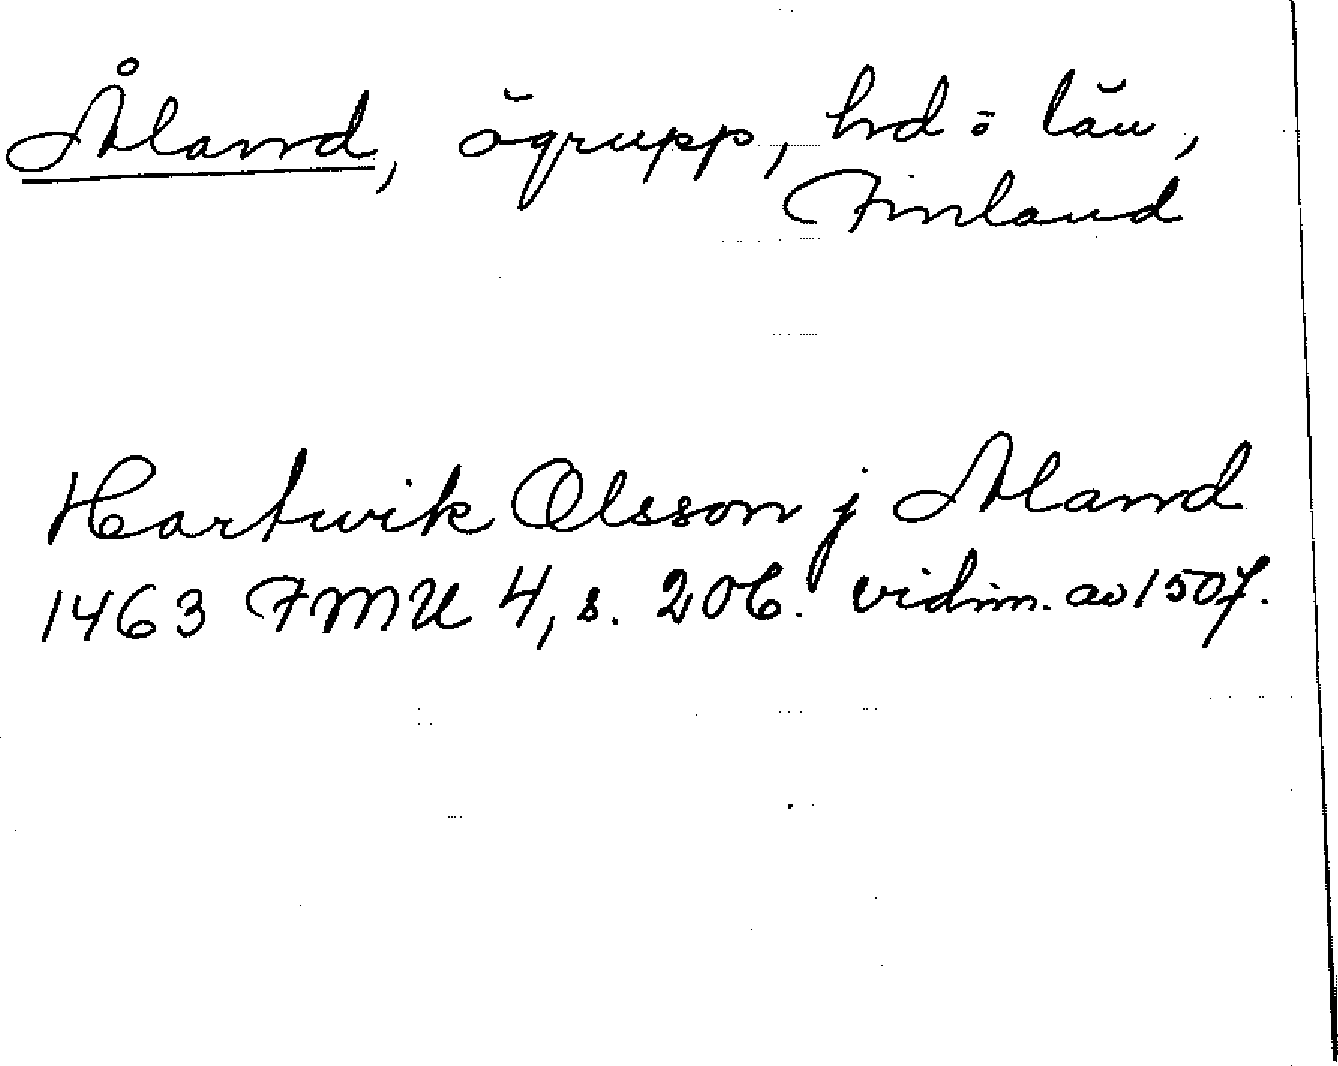 Åland, ögrupp, hd o län,
Finland
Hartwik Olsson j Aland
1463 FMU 4, s. 206. vidim. av 1507.